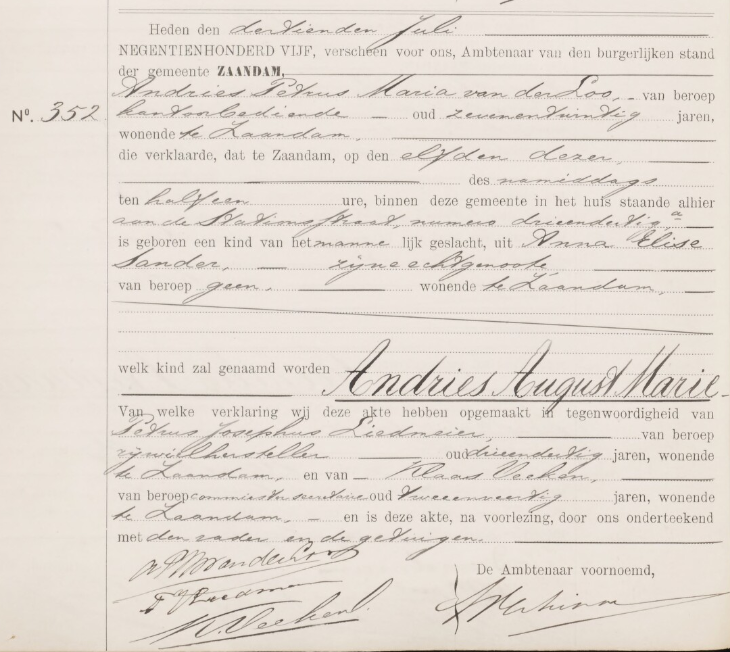 Heden den dertienden Juli
NEGENTIENHONDERD VIJF, verscheen voor ons, Ambtenaar van den burgerlijken stand
der gemeente ZAANDAM,
Andries Petrus Maria van der Loo, van beroep
No. 352 kantoorbediende oud zevenentwintig jaren,
wonende te Zaandam,
die verklaarde, dat te Zaandam, op den elfden dezer,
des namiddags
ten half een ure, binnen deze gemeente in het huis staande alhier
aan de Stationsstraat, numero drieendertig a
is geboren een kind van het manne lijk geslacht, uit Anna Elise
Sander, zijne echtgenoote,
van beroep geen. wonende te Zaandam,
welk kind zal genaamd worden Andries August Marie
Van welke verklaring wij deze akte hebben opgemaakt in tegenwoordigheid van
Petrus Josephus Liedmeier, van beroep
rijwielhersteller oud drieendertig jaren, wonende
te Zaandam, en van Klaas Veeken,
van beroep commies ter secretarie oud tweeenveertig jaren, wonende
te Zaandam, en is deze akte, na voorlezing, door ons onderteekend
met den vader en de getuigen.
De Ambtenaar voornoemd,
K. Veeken